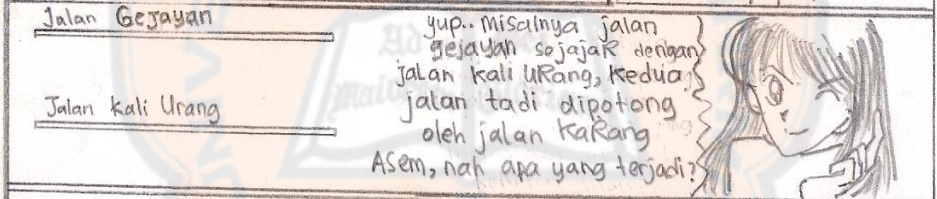 Jalan Gejayan
Jalan Kali Urang
yup.. misalnya jalan
gejayan sejajaR dengan
jalan kali URang, Kedua
jalan tadi dipotong
oleh jalan KaRang
ASem, nah apa yang terjadi?